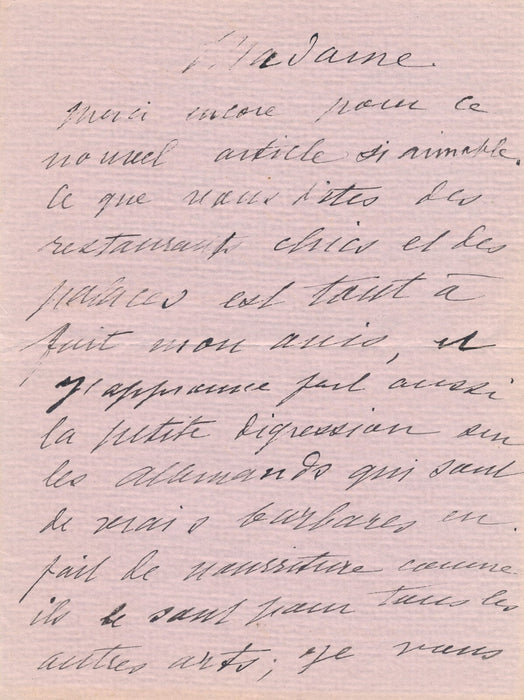 Madame.
Merci encore pour ce
nouvel article si aimable.
Ce que vous dites des
restaurants chics et des
palaces est tout à
fait mon avis, et
j'approuve fort aussi
la petite digression sur
les allemands qui sont
de vrais barbares en
fait de nourriture comme
ils le sont pour tous les
autres arts; je vous